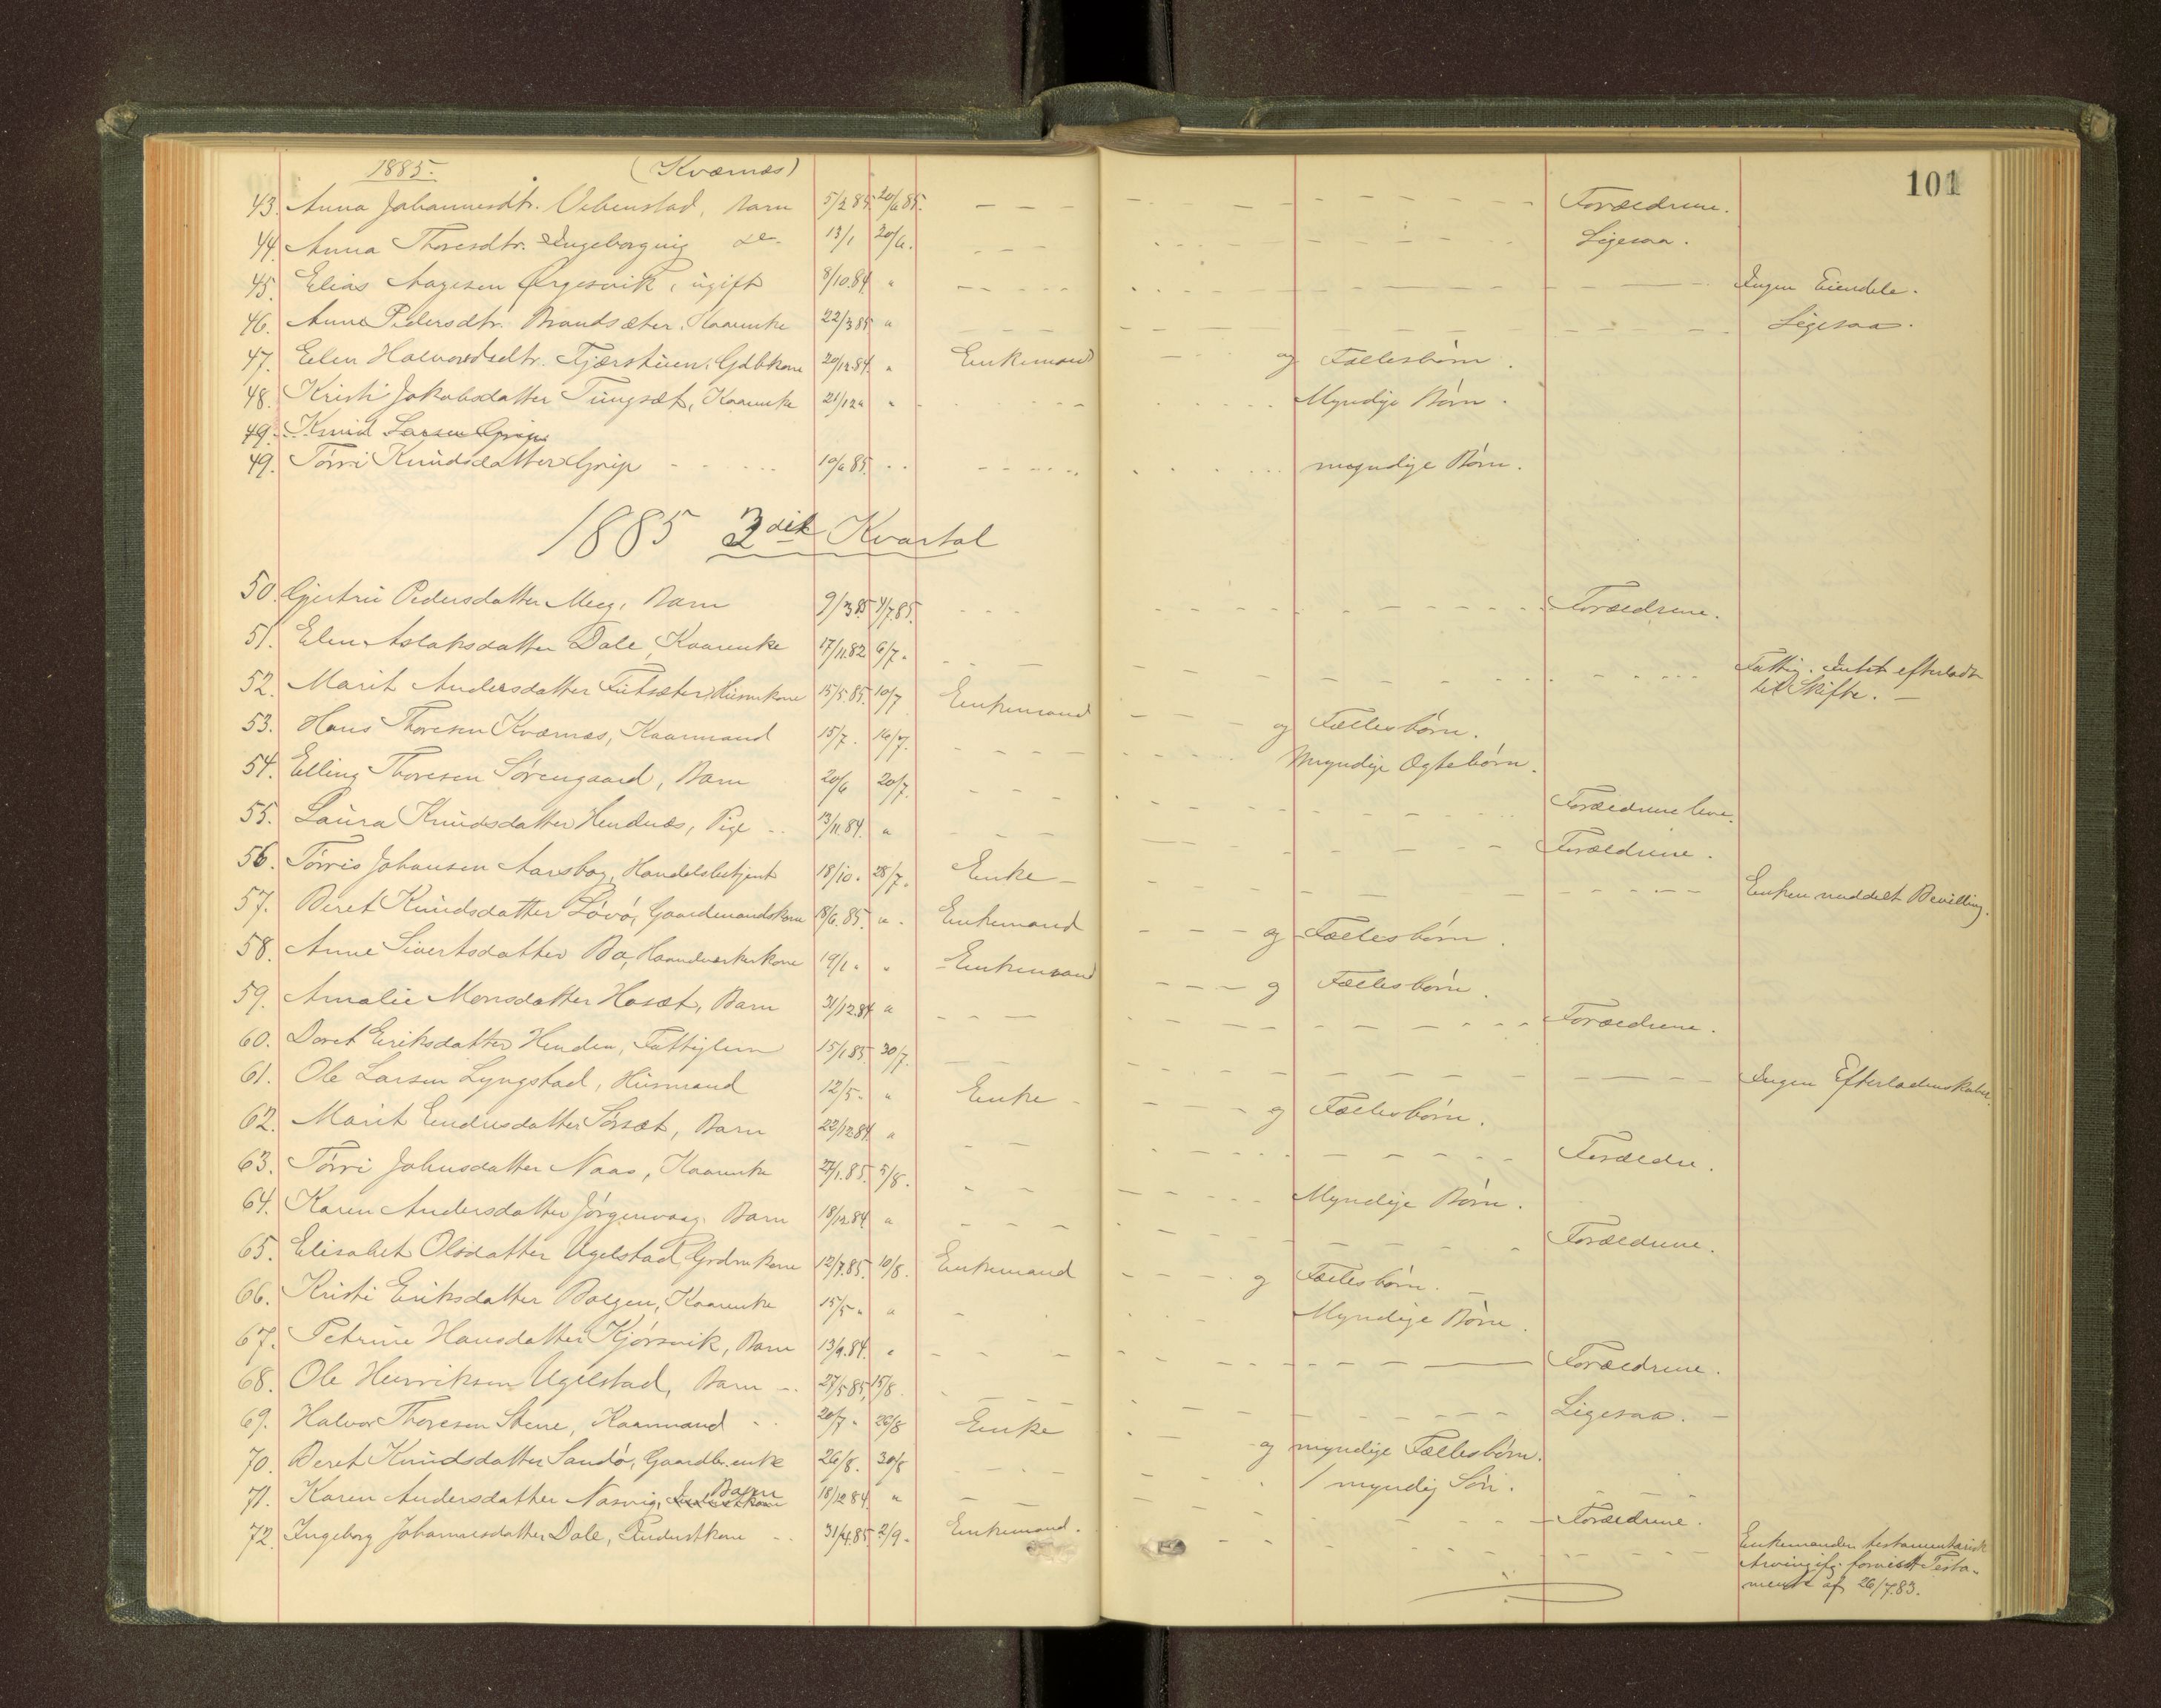 1885. (Kværnæs) 101
43. Anna Johannesdtr. Vebenstad, Barn 5/2 85. 20/6 85. Forældrene.
44. Anna Thoresdtr. Ingeborgvig do. 13/1 20/6. Ligesaa.
45. Elias Aagesen Ørgesvik, ugift 8/10.84 " Ingen Eiendele.
46. Anne Pedersdtr. Brandsæter, Kaarenke 22/3 85 " Ligesaa.
47. Elen Halvorsdtr. Fjærstuen, Gdbkone 20/12.84. " Enkemand og Fællesbørn.
48. Kristi Jakobsdatter Tungsæt, Kaarenke 21/12 " " Myndige Børn.
49. Knud Larsen Grip
49. Tørri Knudsdatter Grip 10/6 85. myndige Børn.
1885 3die Kvartal
50. Gjertru Pedersdatter Meeg, Barn 9/3 85. 4/7.85. Forældrene.
51. Elen Aslaksdatter Dale, Kaarenke 17/11.82 6/7. Fattig. Intet efterladt
til Skifte.
52. Marit Andersdatter Futsæter, Huusmkone 15/5.85. 10/7 Enkemand og Fællesbørn.
53. Hans Thoresen Kværnæs, Kaarmand 15/7. 16/7. Myndige Ægtebørn.
54. Elling Thoresen Sørengaard, Barn 20/6 20/7. Forældrene leve.
55. Laura Knudsdatter Hendnæs, Pige 13/11.84. " Forældrene.
56. Tørris Johansen Aarsbog, Handelsbetjent 18/10. 28/7. Enke Enken meddelt Bevilling.
57. Beret Knudsdatter Løvø, Gaardmandskone 18/6.85. " Enkemand og Fællesbørn.
58. Anne Sivertsdatter Bø, Haandværkerkone 19/1 " " Enkemand og Fællesbørn.
59. Amalie Monsdatter Hasæt, Barn 31/12.84 " Forældrene.
60. Doret Eriksdatter Henden, Fattiglem 15/1 85. 30/7. Ingen Efterladenskaber.
61. Ole Larsen Lyngstad, Husmand 12/5 " " Enke og Fællesbørn.
62. Marit Endresdatter Sørsæt, Barn 22/12 84. " Forældre.
63. Tørri Johnsdatter Naas, Kaarenke 27/1.85. 5/8. Myndige Børn.
64. Karen Andersdatter Jørgenvaag, Barn 18/12 84 " Forældrene.
65. Elisabet Olsdatter Ugelstad, Grdmkone 12/7.85. 10/8. Enkemand og Fællesbørn.
66. Kristi Eriksdatter Bolgen, Kaarenke 15/5 " " Myndige Børn.
67. Petrine Hansdatter Kjørsvik, Barn 13/9.84. " Forældrene.
68. Ole Henriksen Ugelstad, Barn 27/5 85, 15/8. Ligesaa.
69. Halvor Thoresen Stene, Kaarmand 20/7 " 26/8 Enke og myndige Fællesbørn.
70. Beret Knudsdatter Sandø, Gaardb. enke 26/8. 30/8 1 myndig Søn.
71. Karen Andersdatter Nasvig, Barn 18/12 84. " Forældrene.
72. Ingeborg Johannesdatter Dale, Inderstkone 31/4.85. 2/9. Enkemand. Enkemanden testamentarisk
Arving ifg. forevist Testa-
mente af 26/7.83.